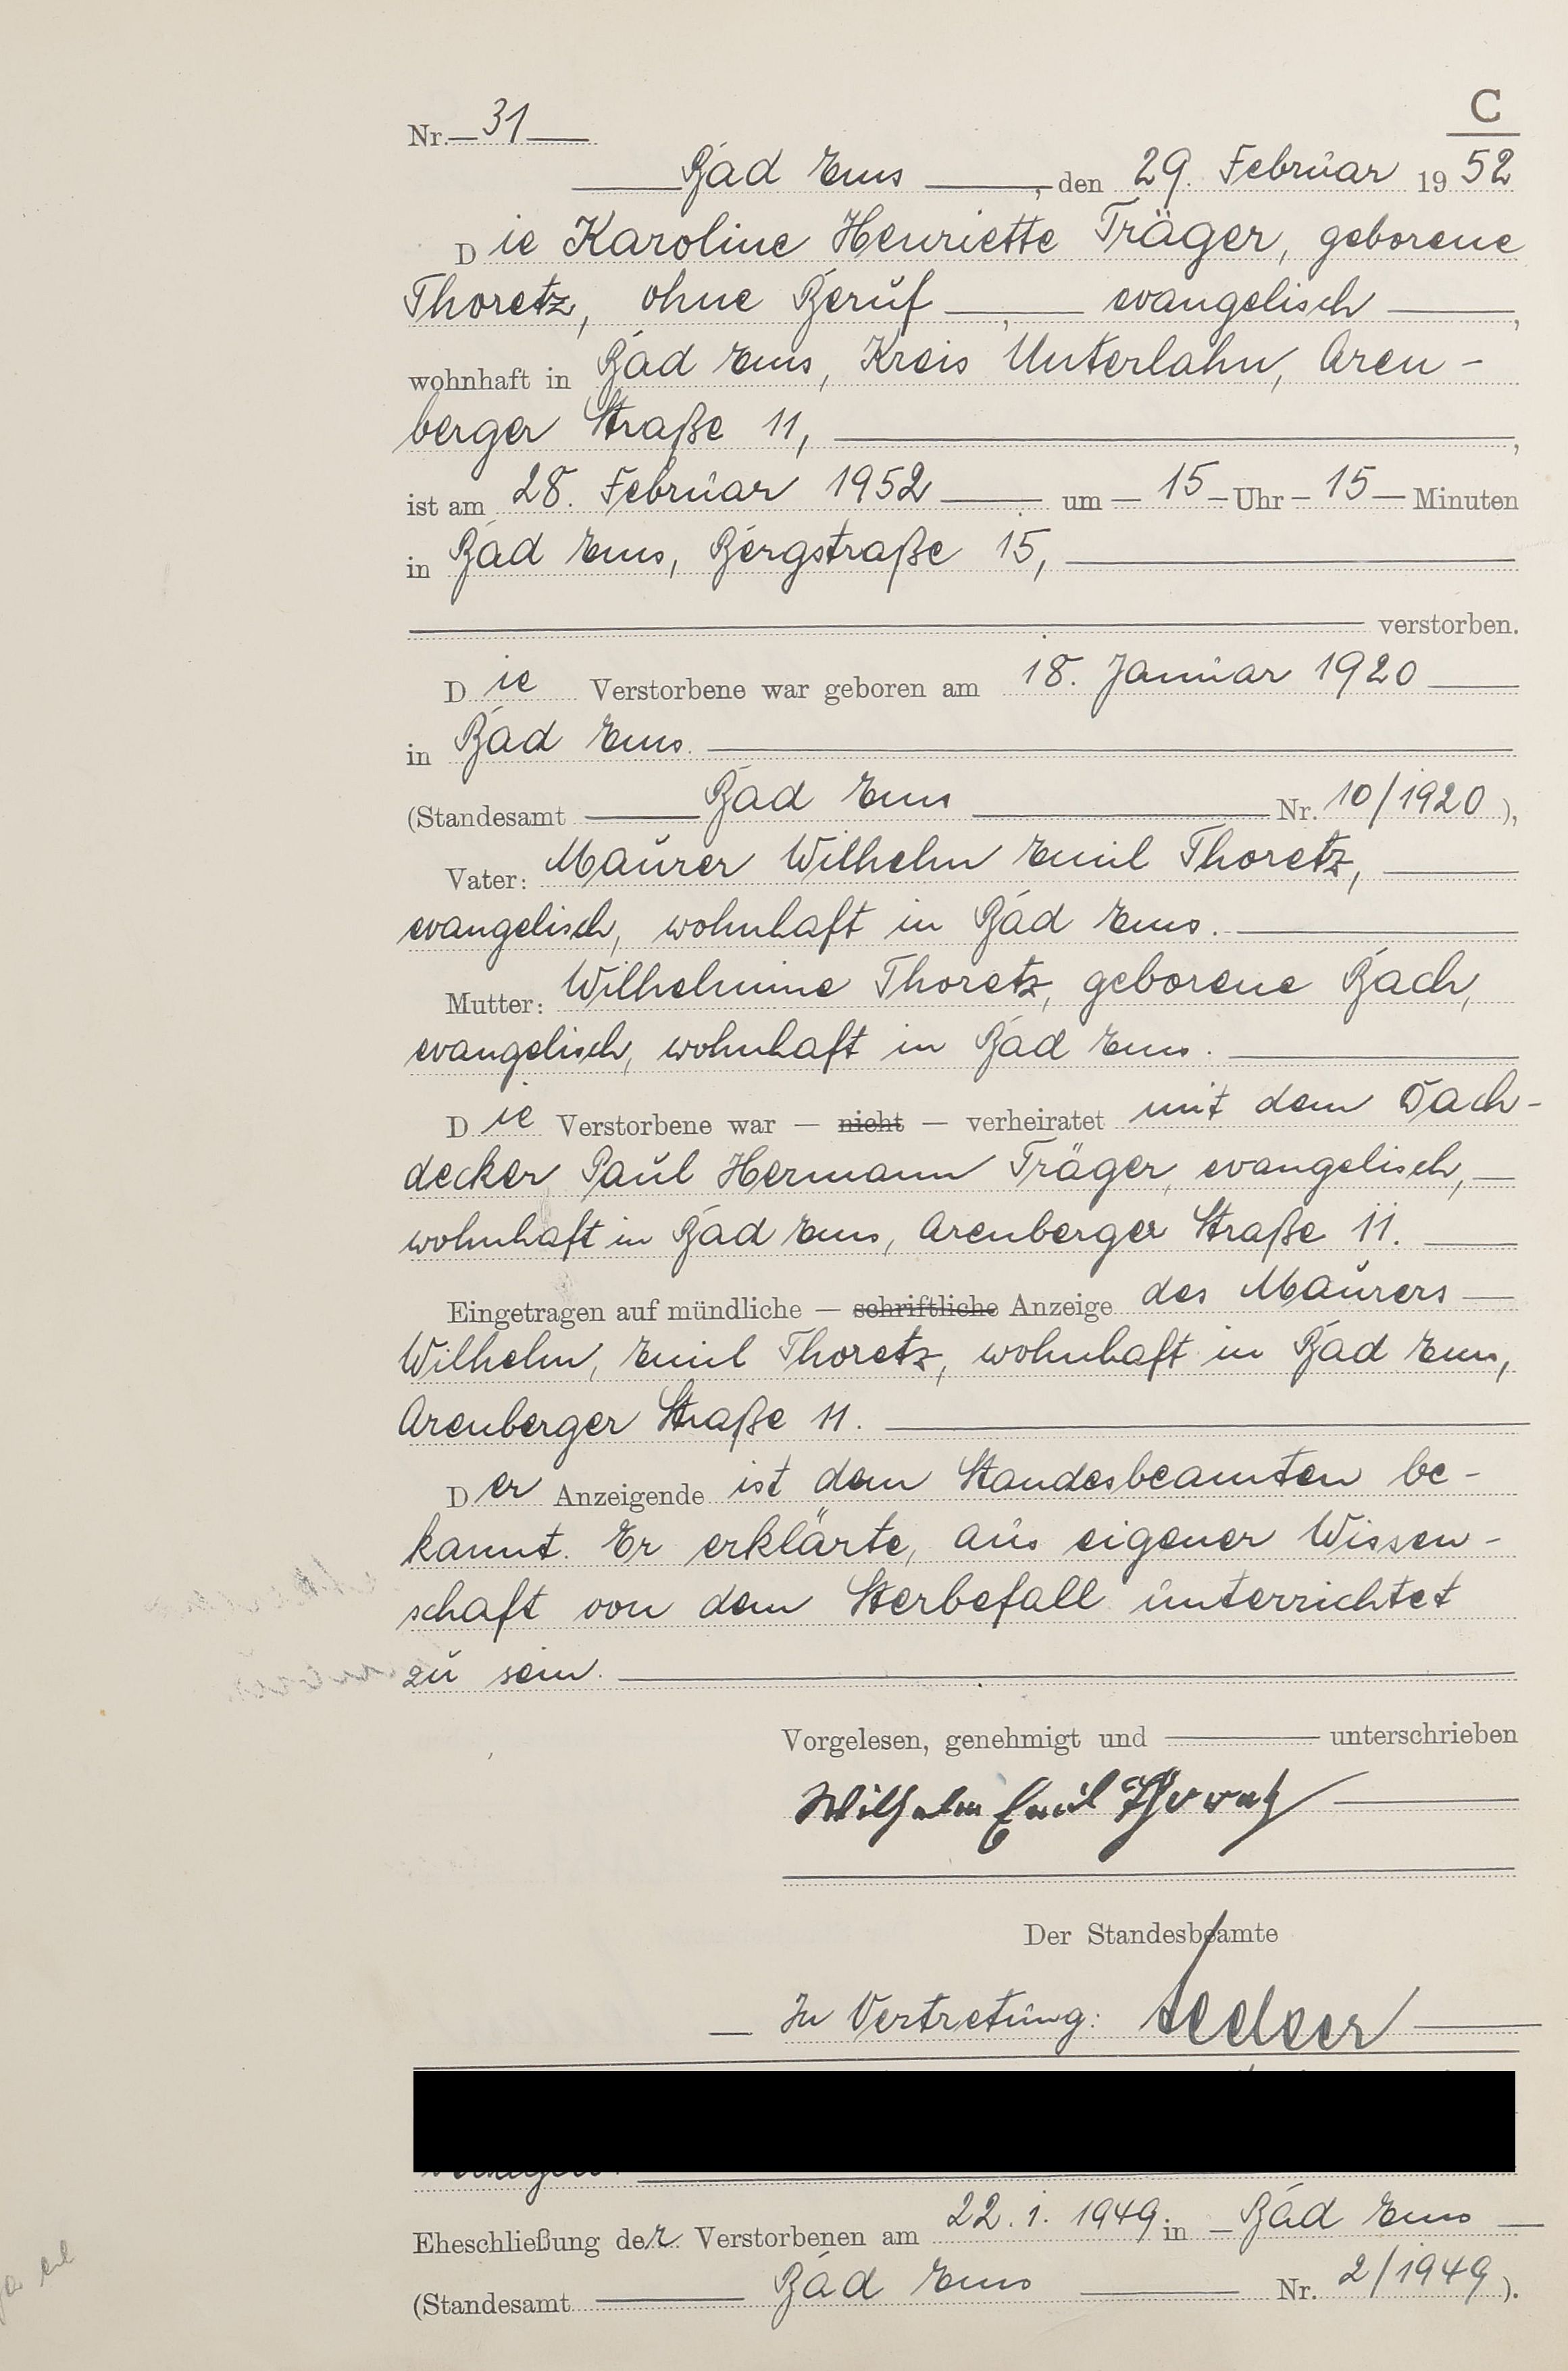 C
Nr. 31
Bad Ems, den 29. Februar 19 52
Die Karoline Henriette Träger, geborene
Thoretz, ohne Beruf, evangelisch,
wohnhaft in Bad Ems, Kreis Unterlahn, Aren-
berger Straße 11,
ist am 28. Februar 1952 um 15 Uhr 15 Minuten
in Bad Ems, Bergstraße 15,
verstorben.
Die Verstorbene war geboren am 18. Januar 1920
in Bad Ems.
(Standesamt Bad Ems Nr. 10/1920),
Vater: Maurer Wilhelm Emil Thoretz,
evangelisch, wohnhaft in Bad Ems.
Mutter: Wilhelmine Thoretz, geborene Bach,
evangelisch, wohnhaft in Bad Ems.
Die Verstorbene war — nicht — verheiratet mit dem Dach-
decker Paul Hermann Träger, evangelisch,
wohnhaft in Bad Ems, Arenberger Straße 11.
Eingetragen auf mündliche — schriftliche Anzeige des Maurers
Wilhelm, Emil Thoretz, wohnhaft in Bad Ems,
Arenberger Straße 11.
Der Anzeigende ist dem Standesbeamten be-
kannt. Er erklärte, aus eigener Wissen-
schaft von dem Sterbefall unterrichtet
zu sein.
Vorgelesen, genehmigt und unterschrieben
Wilhelm Emil Thoretz
Der Standesbeamte
In Vertretung:
Eheschließung der Verstorbenen am 22.1.1949 in Bad Ems
(Standesamt Bad Ems Nr. 2/1949).